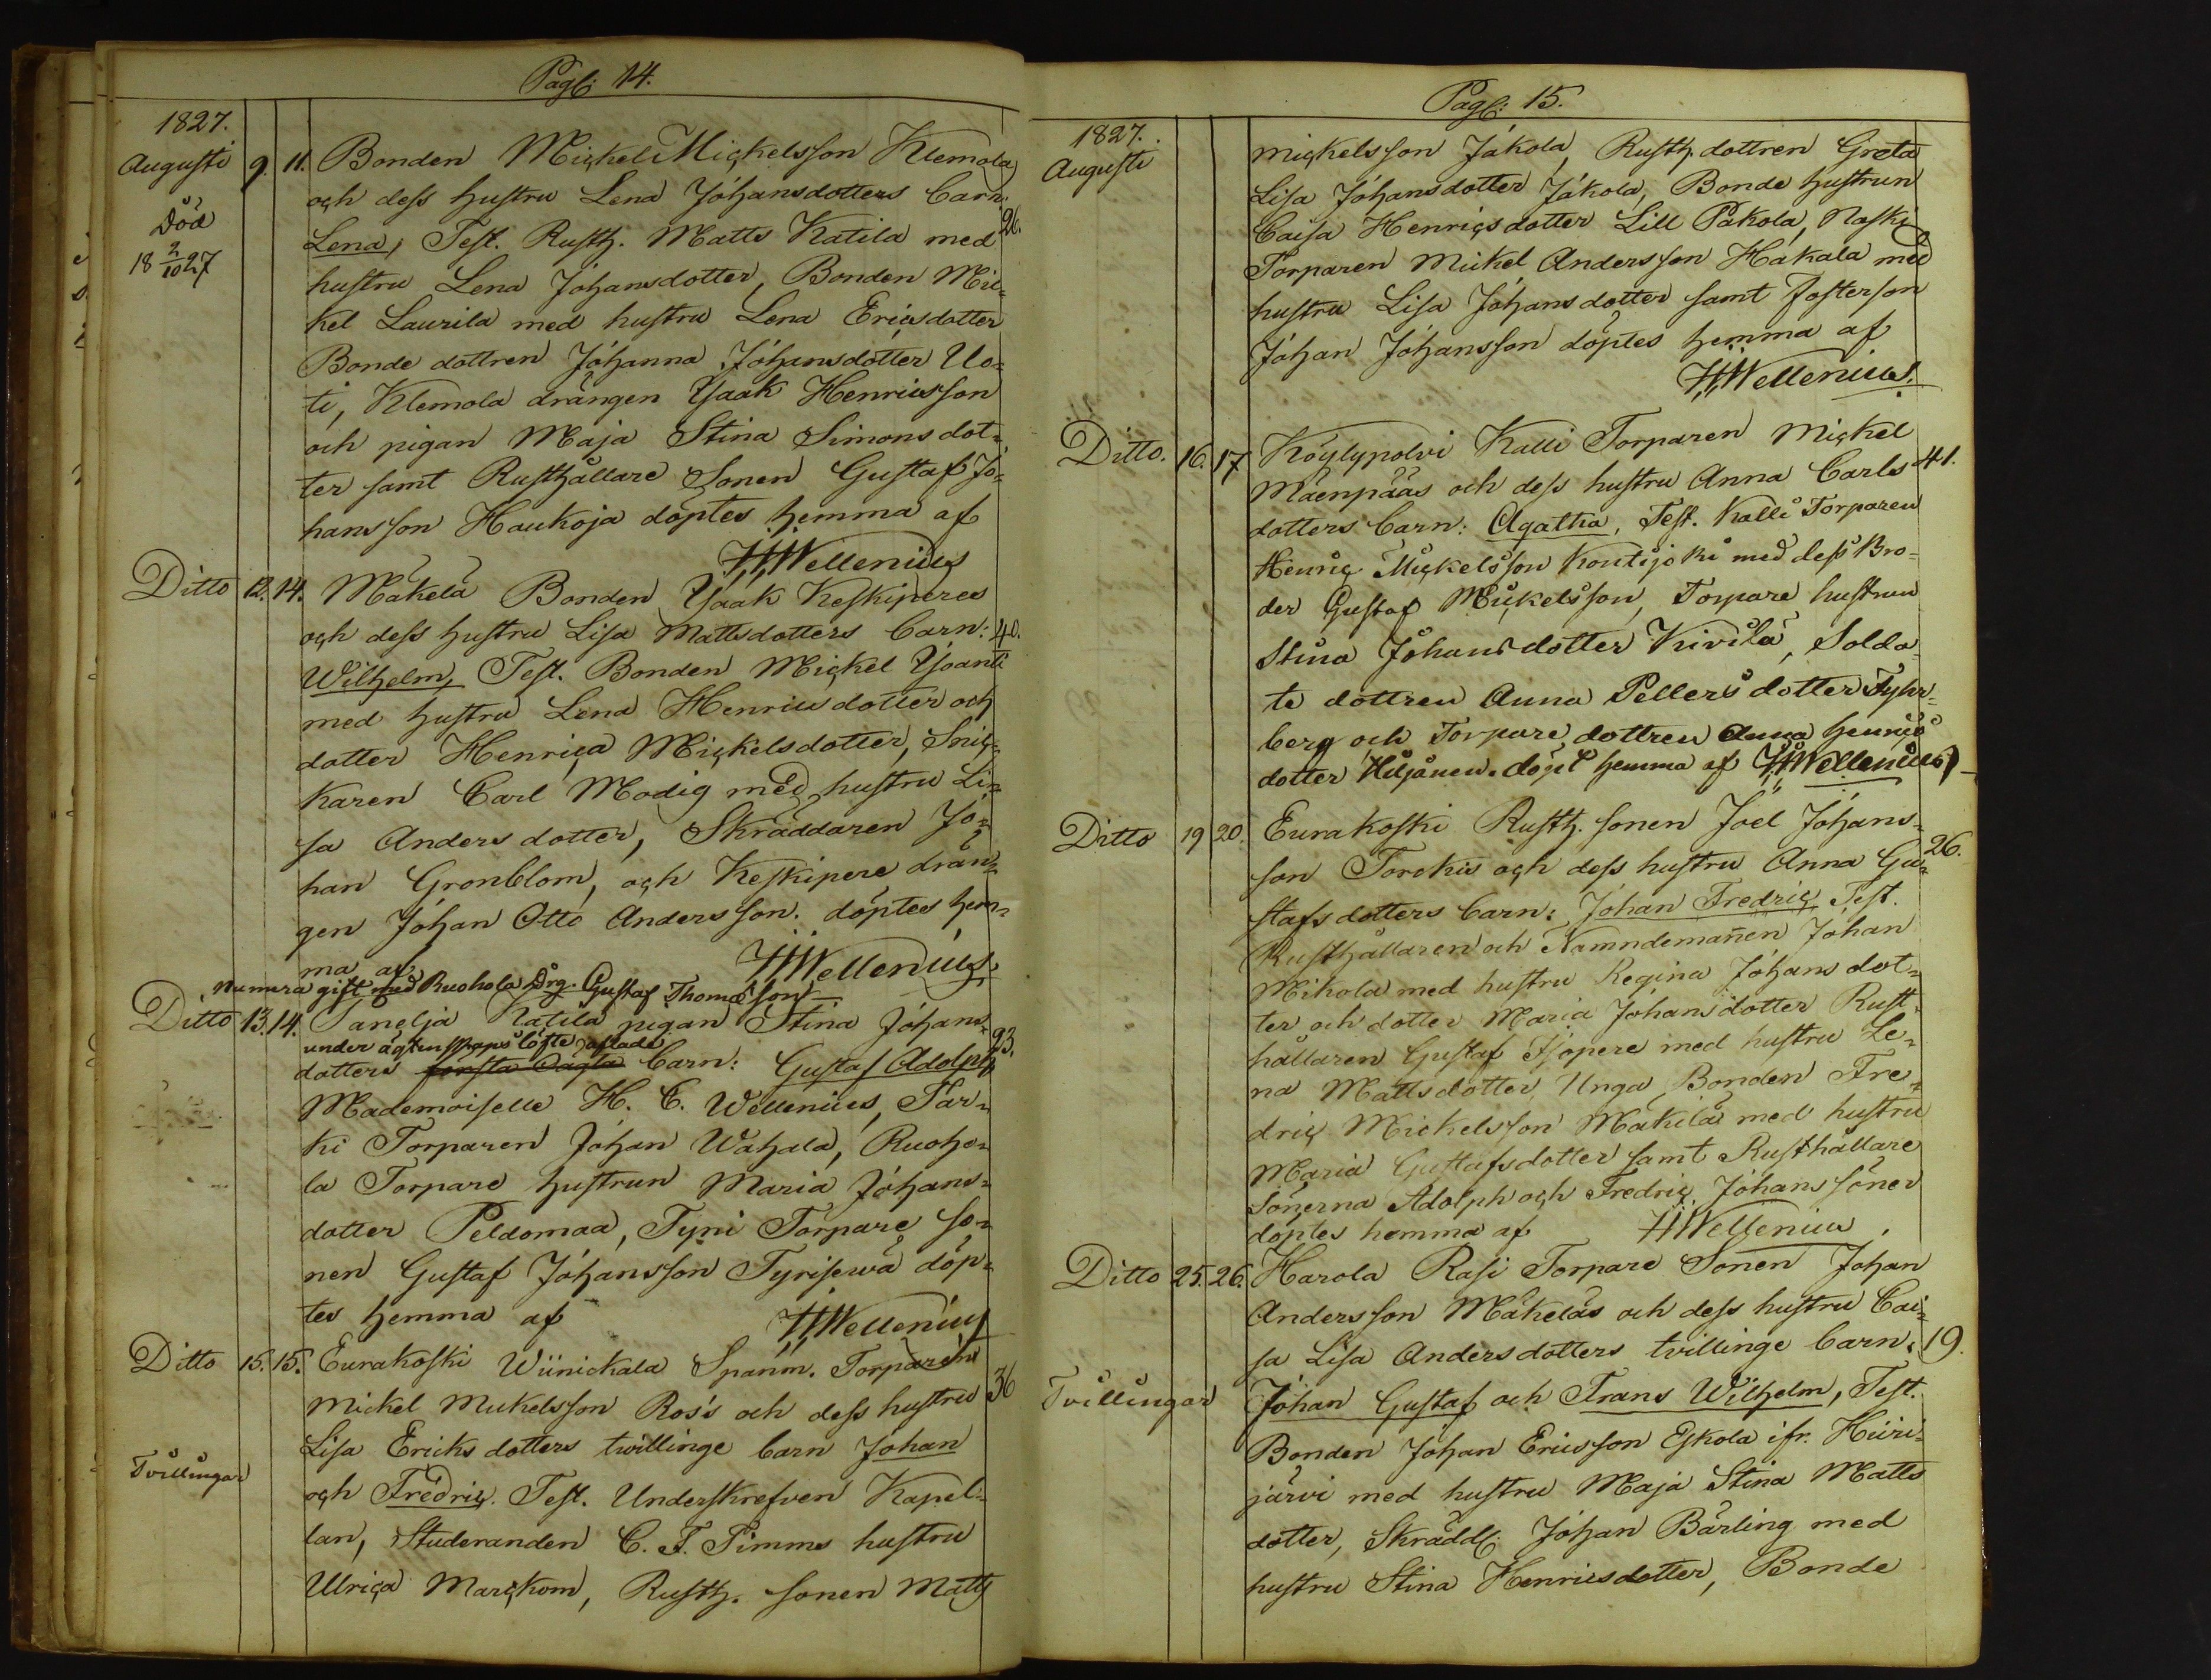 Pag: 14.
1827.
Augusti 9. 11. Bonden Mickel Mickelsson Klemola
och dess hustru Lena Johansdotters Barn:
Lena, Test. Rusth. Matts Katila med 26.
Död
18 2/10 27
hustru Lena Johansdotter, Bonden Mic-
kel Laurila med hustru Lena Ericsdotter
Bonde dottren Johanna Johansdotter Uo-
ti, Klemola drängen Isaak Henricsson
och pigan Maja Stina Simonsdot-
ter samt Rusthållare Sonen Gustaf Jo-
hansson Haukoja döptes hemma af
HWellenius
Ditto 12. 14. Mäkelä Bonden Isaak Keskiperes
och dess hustru Lisa Mattsdotters Barn: 40.
Wilhelm, Test. Bonden Mickel Isoanti
med hustru Lena Henricsdotter och
dotter Henrica Mickelsdotter, Snic-
karen Carl Modig med hustru Li-
sa Andersdotter, Skräddaren Jo-
han Grönblom, och Keskipere drän-
gen Johan Otto Andersson. döptes hem-
ma af HWellenius.
Numera gift med Ruohola Drg. Gustaf Thomasson
Ditto 13. 14. Panelja Katila pigan Stina Johans-
under ägtenskaps löfte aflade
dotters första oägta Barn: Gustaf Adolph 23.
Mademoiselle H. C. Wellenius, Sär-
ki Torparen Johan Wahala, Ruoho-
la Torpare hustrun Maria Johans-
dotter Peldomaa, Tyni Torpare so-
nen Gustaf Johansson Tyrisewä döp-
tes hemma af HWellenius
Ditto 15. 15. Eurakoski Wiinickala Spanm. Torparen
Mickel Mickelsson Ros's och dess hustru 36
Lisa Ericks dotters twillinge barn Johan
Tvillingar
och Fredric. Test. Underskrefven Kapel-
lan, Studeranden C. F. Timms hustru
Ulrica Marckom, Rusth. sonen Matts
Pag: 15.
1827.
Augusti
Mickelsson Jakola, Rusth. dottren Greta
Lisa Johansdotter Jakola, Bonde hustrun
Caisa Henricsdotter Lill Pakola, Naski
Torparen Mickel Andersson Hakala med
hustru Lisa Johansdotter samt fosterson
Johan Johansson döptes hemma af
HWellenius.
Ditto. 16. 17 Köylypolvi Kalli Torparen Mickel
Mäenpääs och dess hustru Anna Carls 41.
dotters Barn: Agatha, Test. Kalli Torparen
Henric Mickelsson Kontijoki med dess Bro-
der Gustaf Mickelsson, Torpare hustrun
Stina Johansdotter Kivila, Solda-
te dottren Anna Pellersdotter Fyhr-
berg och Torpare dottren Anna Henrics
dotter Hiljanen. döpt hemma af HWellenius
Ditto 19 20. Eurakoski Rusth. sonen Joel Johans-
son Torckis och dess hustru Anna Gu- 26.
stafsdotters barn: Johan Fredric Test.
Rusthållaren och Nämndemannen Johan
Mikola med hustru Regina Johansdot-
ter och dotter Maria Johansdotter Rust-
hållaren Gustaf Isopere med hustru Le-
na Mattsdotter, Unga Bonden Fre-
dric Mickelsson Mäkilä med hustru
Maria Gustafsdotter samt Rusthållare
Sönerna Adolph och Fredric Johans söner
döptes hemma af HWellenius.
Ditto 25. 26. Harola Rasi Torpare Sonen Johan
Andersson Mäkeläs och dess hustru Cai-
sa Lisa Andersdotters tvillinge barn: 19.
Tvillingar
Johan Gustaf och Frans Wilhelm, Test.
Bonden Johan Ericsson Eskola ifr. Hiiri-
järvi med hustru Maja Stina Matts
dotter, Skrädd: Johan Bärling med
hustru Stina Henricsdotter, Bonde